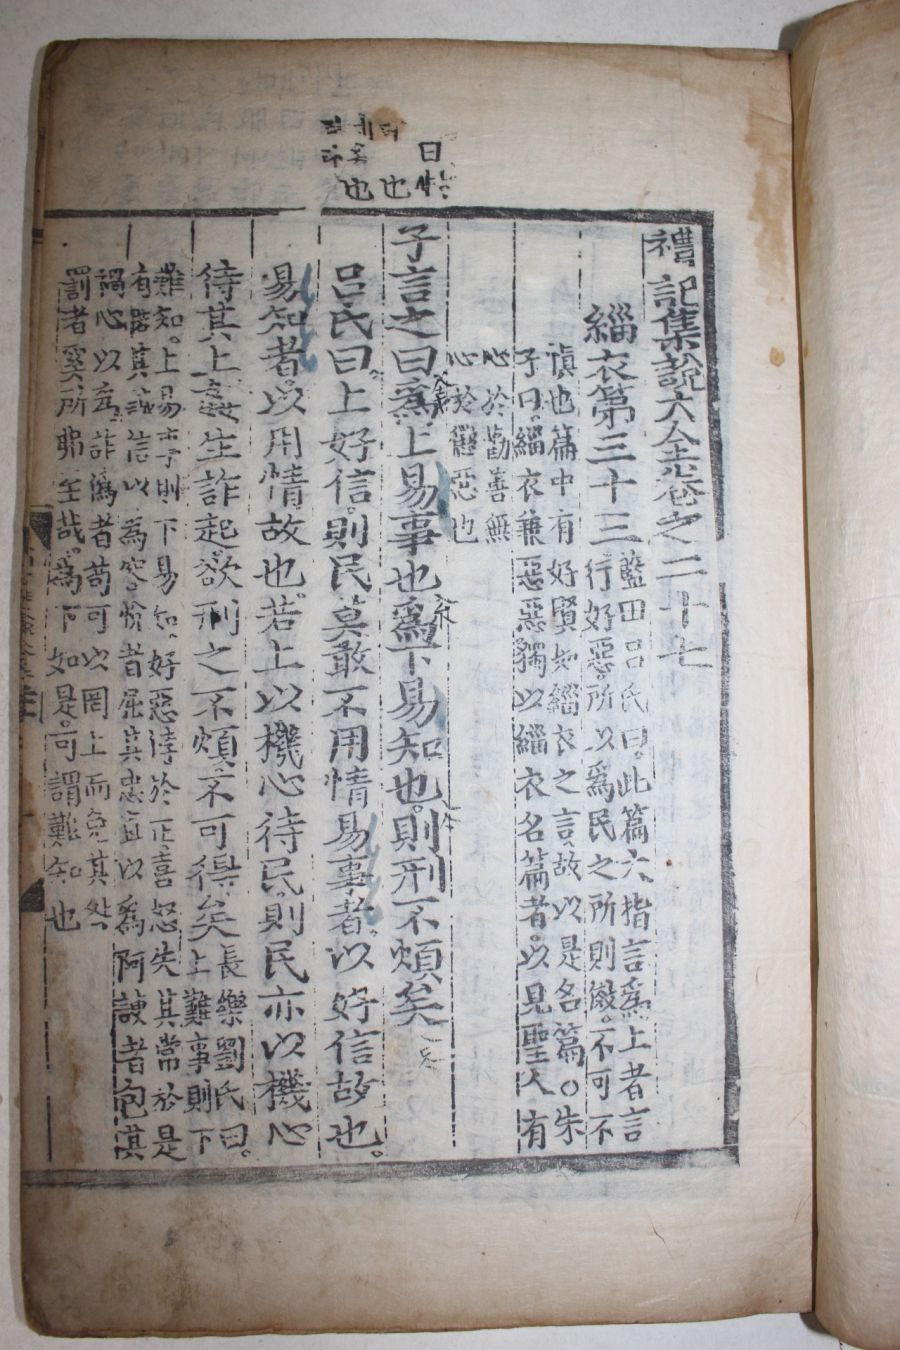 禮記集說大全卷之二十七
緇衣第三十三
藍田呂氏曰此篇大指言爲上者言
行好惡所以爲民之所則儆不可不
愼也篇中有好賢如緇衣之言故以是名篇○朱
子曰緇衣兼惡惡獨以緇衣名篇者以見聖人有
心於勸善無
心於懲惡也
子言之曰爲上易事也爲下易知也則刑不煩矣
呂氏曰上好信則民莫敢不用情易事者以好信故也
易知者以用情故也若上以機心待民則民亦以機心
待其上姦生詐起欲刑之不煩不可得矣
長樂劉氏曰
上難事則下
難知上易事則下易知好惡悖於正喜怒失其常於是
有睽其誠信以爲容恱者屈其忠直以爲阿諛者包其
禍心以爲詐僞者苟可以罔上而免其
罰者奚所弗至哉爲下如是可謂難知也
曰
也也